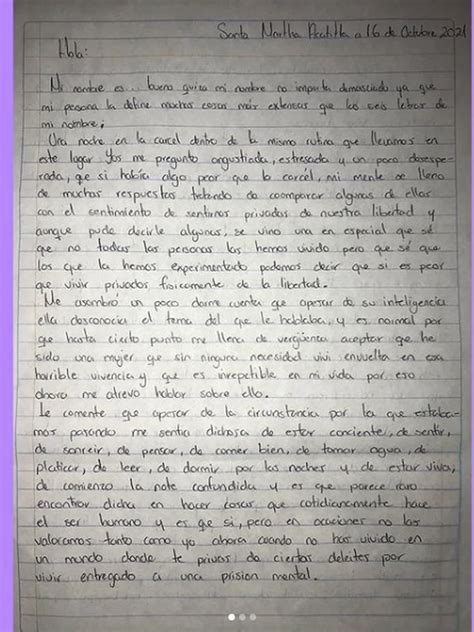 Santa Martha Acatitla a 16 de Octubre 2021
Hola:
Mi nombre es... bueno quiza mi nombre no importa demasciado ya que
mi persona la define muchas cosas más extensas que las seis letras de
mi nombre;
Una noche en la carcel dentro de la misma rutina que llevamos en
este lugar Yos me pregunto angustiada, estresada y un poco desespe-
rada, que si habia algo peor que la carcel, mi mente se lleno
de muchas respuestas tratando de coomparar algunas de ellas
con el sentimiento de sentirnos privadas de nuestra libertad y
aunque pude decirle algunas, se vino una en especial que sé
que no todas las personas las hemos vivido pero que sé que
los que la hemos experimentado podemos decir que si es peor
que vivir privados fisicamente de la libertad.
Me asombró un poco darme cuenta que apesar de su inteligencia
ella desconocia el tema del que le hablaba, y es normal por
que hasta cierto punto me llena de vergüenza aceptar que he
sido una mujer que sin ninguna necesidad vivi envuelta en esa
horrible vivencia y que es irrepetible en mi vida por eso
ahora me atrevo hablar sobre ello.
Le comente que apesar de la circunstancia por la que estaba-
mos pasando me sentia dichosa de estar conciente, de sentir,
de sonreir, de pensar, de comer bien, de tomar agua, de
platicar, de leer, de dormir por las noches y de estar viva,
de comienzo la note confundida y es que parece raro
encontrar dicha en hacer cosas que cotidianamente hace
el ser humano y es qe si, pero en ocaciones no las
valoramos tanto como yo ahora cuando no has vivido en
un mundo donde te privas de ciertos deleites por
vivir entregado a una prision mental.